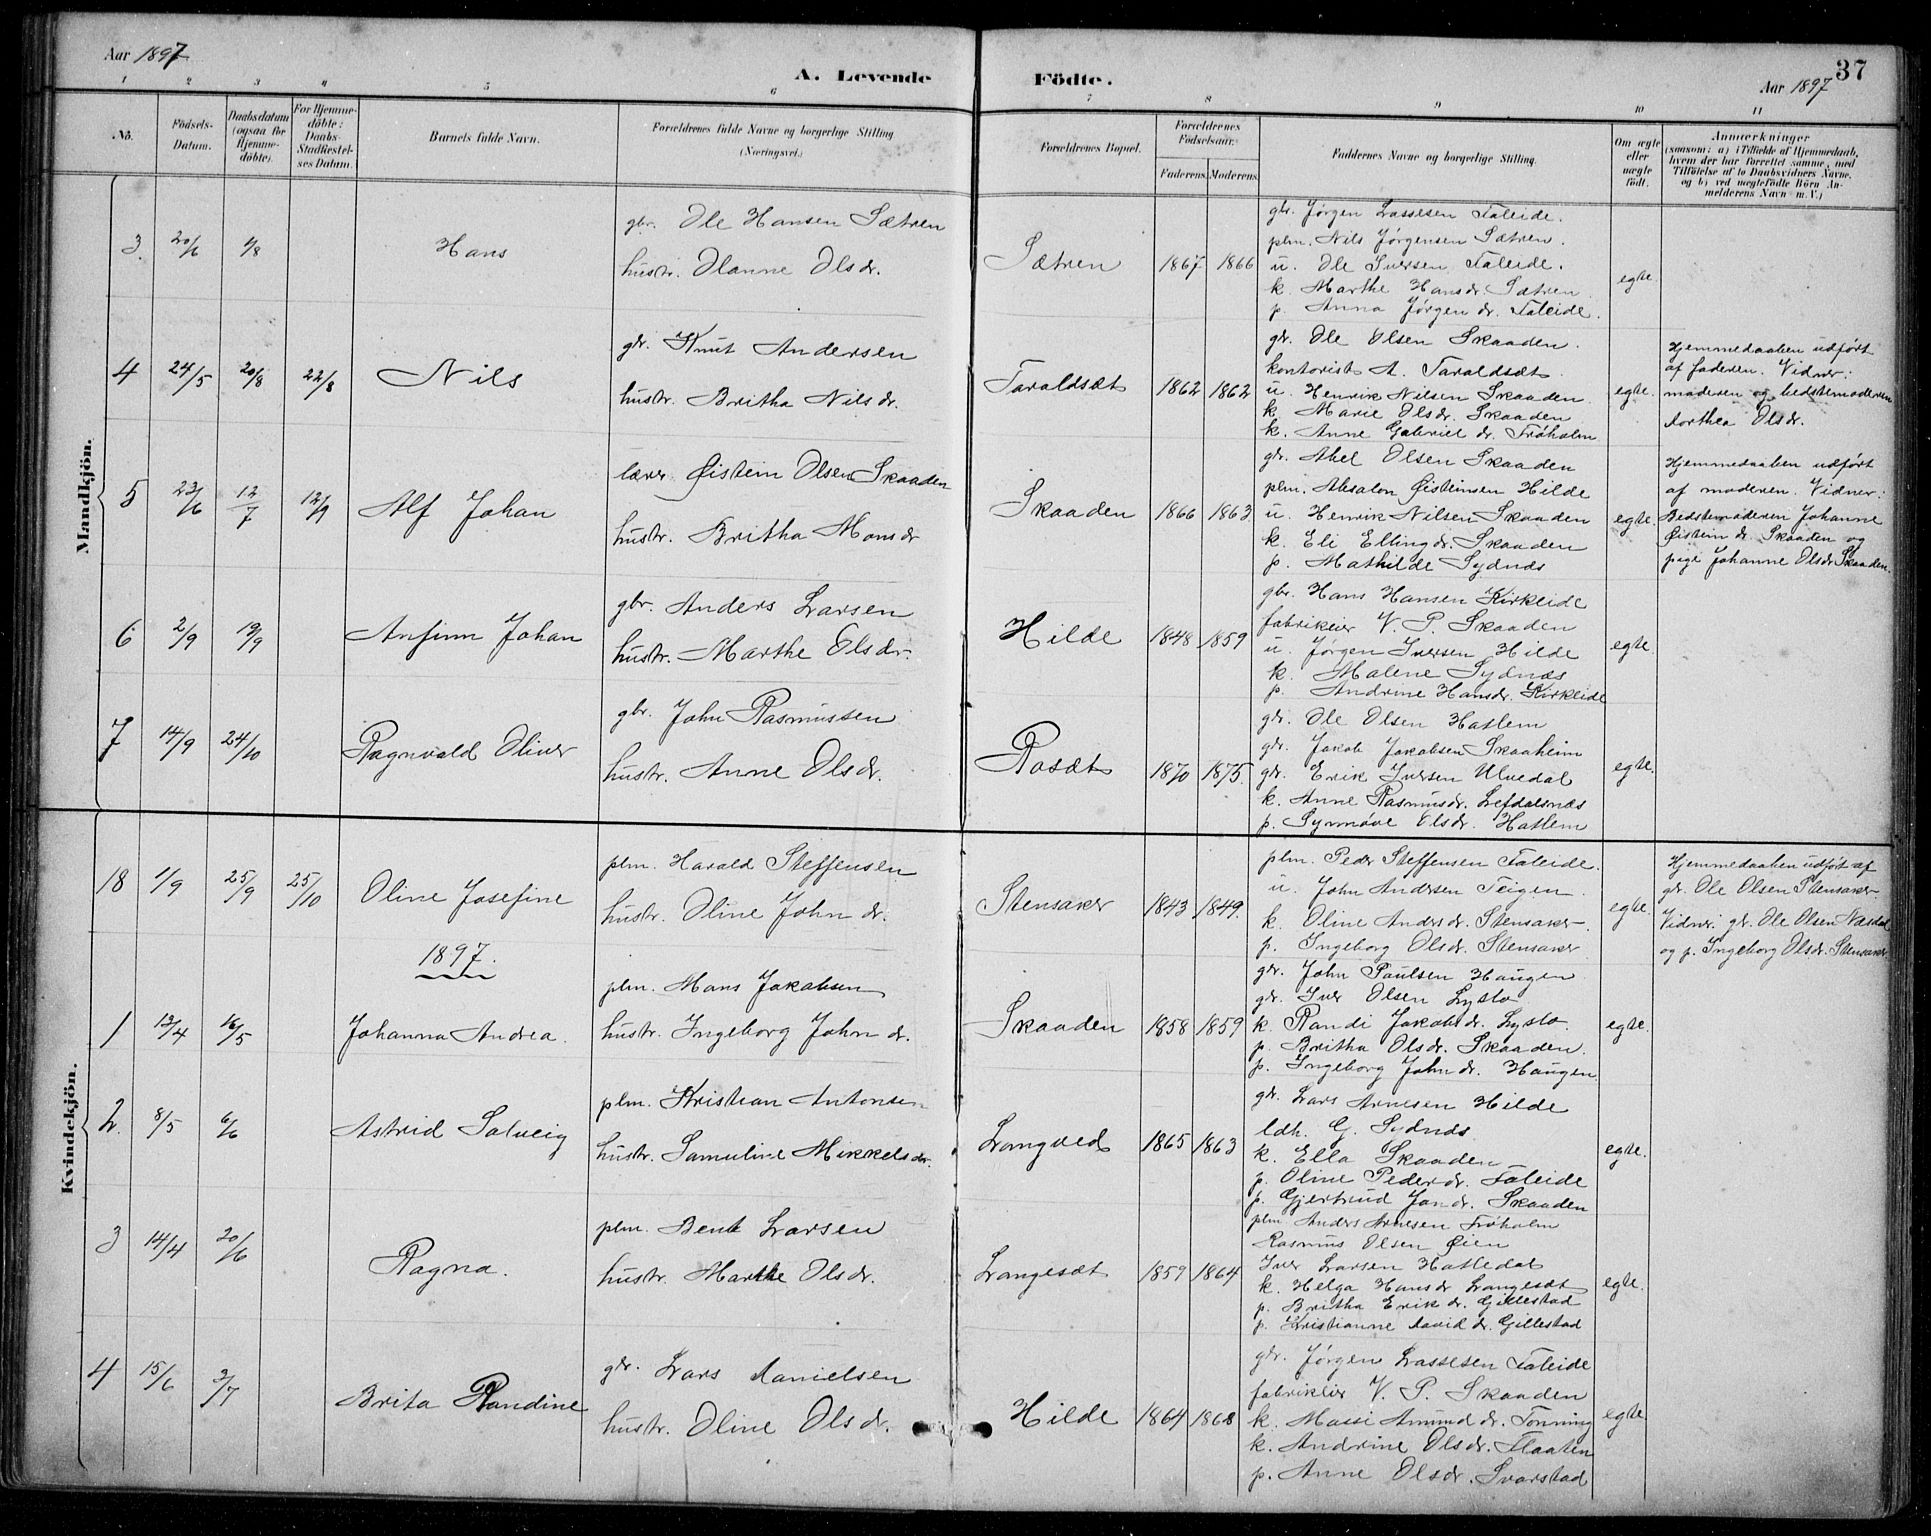 Aar 1897
A. Levende
Födte.
Aar 1897
37
1 2 3 4 5 6 7 8 9 10 11
No.
Födsels-Datum.
Daabsdatum (ogsaa for Hjemme-döbte).
For Hjemme-döbte: Daabs-Stadfæstel-ses Datum.
Barnets fulde Navn.
Forældrenes fulde Navne og borgerlige Stilling
(Næringsvei.)
Forældrenes Bopæl.
Forældrenes Födselsaar.
Faderens. Moderens.
Faddernes Navne og borgerlige Stilling.
Om ægte eller uægte födt.
Anmærkninger
(saasom: a) i Tilfælde af Hjemmedaab,
hvem der har forrettet samme, med
Tilföielse af to Daabsvidners Navne,
og b) ved uægtefödte Börn An-
melderens Navn m. V.)
Mandkjön.
3. 20/6 1/8 Hans
gbr. Ole Hansen Sætren
hustr. Olanne Olsdr.
Sætren 1867 1866
gbr. Jørgen Lassesen Faleide.
plm. Nils Jørgensen Sætren.
u. Ole Iversen Faleide.
k. Marthe Hansdr Sætren
p. Anna Jørgen dr. Faleide.
egte.
4 24/5 20/8 22/8 Nils
gbr. Knut Andersen
hustr. Britha Nilsdr.
Taraldsæt 1862 1862
gr. Ole Olsen Skaaden.
kontorist A. Taraldsæt.
u. Henrik Nilsen Skaaden.
k. Marie Olsdr. Skaaden
k. Anne Gabriel dr. Frøholm
egte.
Hjemmedaaben udført
af faderen. Vidner:
moderen og bedstemoderen
Dorthea Olsdr.
5 23/6 12/7 12/9 Alf Johan
lærer. Øistein Olsen Skaaden
hustr. Britha Monsdr
Skaaden 1866 1863
gr. Abel Olsen Skaaden
plm. Absalon Øisteinsen Hilde
u. Henrik Nilsen Skaaden
k. Eli Ellingdr. Skaaden
p. Mathilde Sydnæs
egte.
Hjemmedaaben udført
af moderen. Vidner:
Bedstemoderen Johanne
Øistein dr. Skaaden og
pige Johanne Olsdr. Skaaden.
6 2/9 19/9 Anfinn Johan
gbr. Anders Larsen
hustr. Marthe Olsdr.
Hilde 1848 1859
gbr. Hans Hansen Kirkeide
fabrikeier V. P. Skaaden
u. Jørgen Iversen Hilde
k. Malene Sydnæs
p. Andrine Hansdr. Kirkeide
egte.
7 14/9 24/10 Ragnvald Oliver
gbr. John Rasmussen
hustr. Anne Olsdr.
Rosæt 1870 1875.
gr. Ole Olsen Hatlem
gr. Jakob Jakobsen Skaaheim
gr. Erik Iversen Ulvedal
k. Anne Rasmusdr. Lefdalsnæs
p. Synnøve Olsdr. Hatlem
egte.
Kvindekjön.
18 1/9 25/9 25/10 Oline Josefine
plm. Harald Steffensen
hustr. Oline John dr.
Stensaker 1843 1849.
plm. Peder Steffensen Faleide.
u. John Andersen Teigen.
k. Oline Anders dr. Stensaker.
p. Ingeborg Olsdr. Stensaker
egte.
Hjemmedaaben udført af
gr. Ole Olsen Stensaker
Vidner: gr. Ole Olsen
og p. Ingeborg Olsdr. Stensaker
1897.
1 13/4 16/5 Johanna Andrea.
plm. Mons Jakobsen
hustr. Ingeborg John dr.
Skaaden 1858 1859
gr. John Paulsen Haugen
gr. Iver Olsen Lyslo
k. Randi Jakobdr. Lyslo.
p. Britha Olsdr. Skaaden.
p. Ingeborg John dr. Haugen
egte.
2. 8/5 6/6 Astrid Solveig
plm. Kristian Antonsen
hustr. Samuline Mikkelsdr.
Langved 1865 1863
gr. Lars Arnesen Hilde
ldh. G. Sydnæs
k. Ella Skaaden
p. Oline Pederdr. Faleide
p. Gjertrud Jan dr. Skaaden
egte.
3 14/4 20/6 Ragna.
plm. Bent Larsen
hustr. Marthe Olsdr.
Langesæt 1859 1864
plm. Anders Arnesen Frøholm
Rasmus Olsen Øien
Iver Larsen Hatledal
k. Helga Hansdr Langesæt
p. Britha Erik dr. Gillestad
p. Kristianne David dr. Gillestad
egte.
4 15/6 3/7 Brita Randine
gbr. Lars Danielsen
hustr. Oline Olsdr.
Hilde 1864 1868
gbr. Jørgen Lassesen Faleide
fabrikeier V. P. Skaaden
k. Massi Amund dr. Tonning
k. Andrine Olsdr. Flaaten
p. Anne Olsdr. Svarstad
egte.